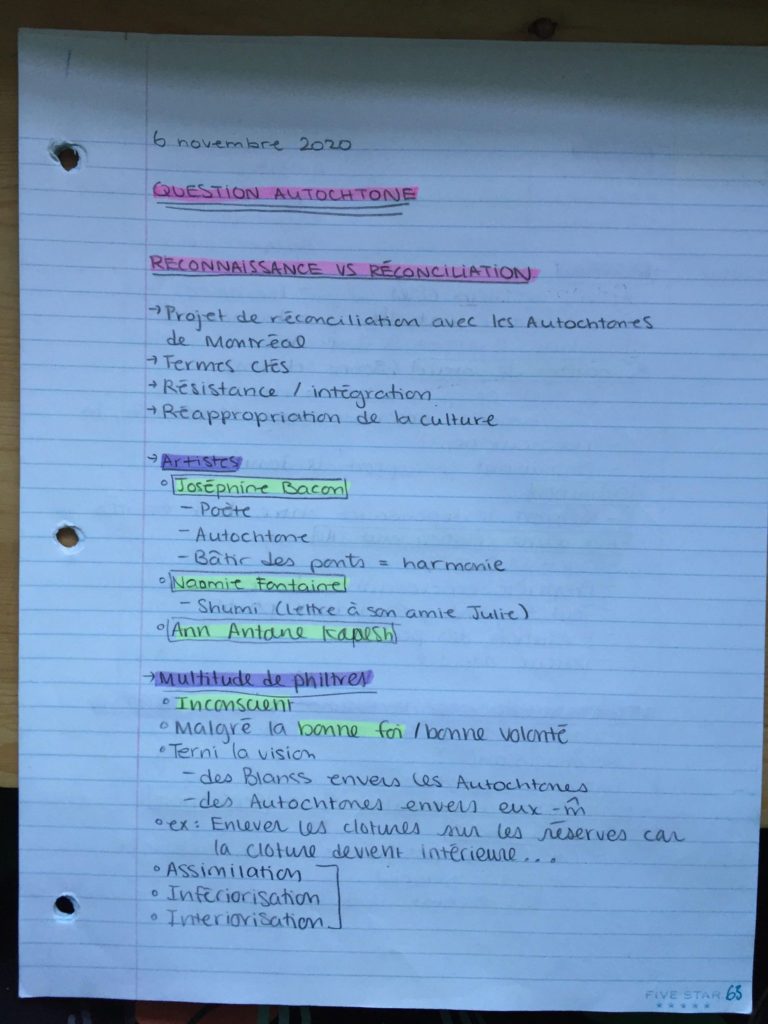 6 novembre 2020
QUESTION AUTOCHTONE
RECONNAISSANCE VS RÉCONCILIATION
→ Projet de réconciliation avec les Autochtones
de Montréal
→ Termes clés
→ Résistance / intégration
→ Réappropriation de la culture
→ Artistes
° Joséphine Bacon
- Poète
- Autochtone
- Bâtir des ponts = harmonie
° Naomie Fontaine
- Shumi (lettre à son amie Julie)
° Ann Antane Kapesh
→ Multitude de philtres
° Inconscient
° Malgré la bonne foi / bonne volonté
° Terni la vision
- des Blancs envers les Autochtones
- des Autochtones envers eux-m̂
° ex: Enlever les clotures sur les réserves car
la cloture devient intérieure...
° Assimilation
° Infériorisation
° Interiorisation
FIVE STAR 63